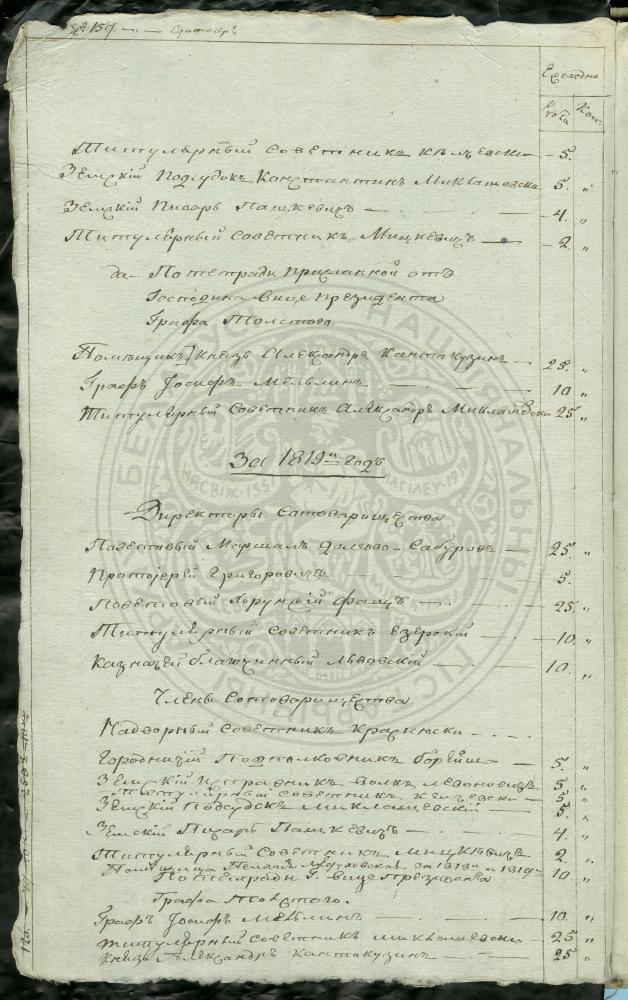 Ежегодно
Рубли Коп.
Титулярный Советникъ Кѣлчевски — 5.
Земскій Подсудокъ Константинъ Миклашевски 5. "
Земскій Писарь Пашкевичъ — 4. "
Титулярный Советникъ Мицкевичъ — 2 "
да По тетради присланной отъ
Господина Вице Президента
Графа Толстого.
Помѣщикъ Князь Александръ Кантакузинъ — 25. "
Графъ Іосифъ Мельлинъ — 10 "
Титулярный Советникъ Александръ Миклашевски 25 "
За 1819й годъ
Директоры Сотоварищества
Поветовый Маршалъ Долгово-Сабуровъ — 25. "
Протоіерей Григоровичъ — 5. "
Поветовый Хорунжій Фащъ — 25 "
Титулярный Советникъ Езерскій — 10 "
Казначей благочинный Львовскій — 10. "
Члены Сотоварищества
Надворный Советникъ Красински —
Городничій Подполковникъ Борейша — 5. "
Земскій Исправникъ Волкъ Левоновичъ 5. "
Титулярный Советникъ Келчевски — 5 "
Земскій Подсудокъ Миклашевскій — 5. "
Земскій Писарь Пашкевичъ — 4. "
Титулярный Советникъ Мицкевичъ 2. "
Помѣщица за 1818й и 1819й 10 "
По тетради Г. Вице Президента
Графа Толстого.
Графъ Іосифъ Мельлинъ — 10. "
Титулярный Советникъ Миклашевски — 25 "
Князь Александръ Кантакузинъ — 25 "